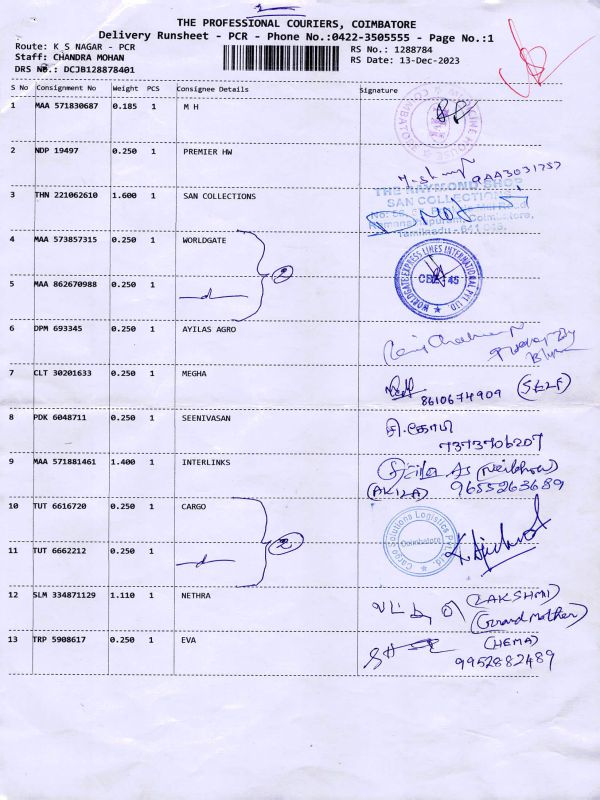 THE PROFESSIONAL COURIERS, COIMBATORE
Delivery Runsheet - PCR - Phone No.:0422-3505555 - Page No.:1
Route: K S NAGAR - PCR
RS No.: 1288784
Staff: CHANDRA MOHAN
RS Date: 13-Dec-2023
DRS No.: DCJB128878401
S No Consignment No Weight PCS Consignee Details Signature
1 MAA 571830687 0.185 1 M H
2 NDP 19497 0.250 1 PREMIER HW
3 THN 221062610 1.600 1 SAN COLLECTIONS
THE RAYMOND SHOP
SAN COLLECTIONS
4 MAA 573857315 0.250 1 WORLDGATE
2
WORLDGATE EXPRESS LINES INTERNATIONAL PVT LTD.
5 MAA 862670988 0.250 1
6 DPM 693345 0.250 1 AYILAS AGRO
7 CLT 30201633 0.250 1 MEGHA
8610674909 (SELF)
8 PDK 6048711 0.250 1 SEENIVASAN
7373706207
9 MAA 571881461 1.400 1 INTERLINKS
(AKILA) 9655263689
10 TUT 6616720 0.250 1 CARGO
2
Cargo Solutions Logistics Pvt Ltd.
Coimbatore
11 TUT 6662212 0.250 1
12 SLM 334871129 1.110 1 NETHRA (LAKSHMI)
(Grand mother)
13 TRP 5908617 0.250 1 EVA (HEMA)
9952882489